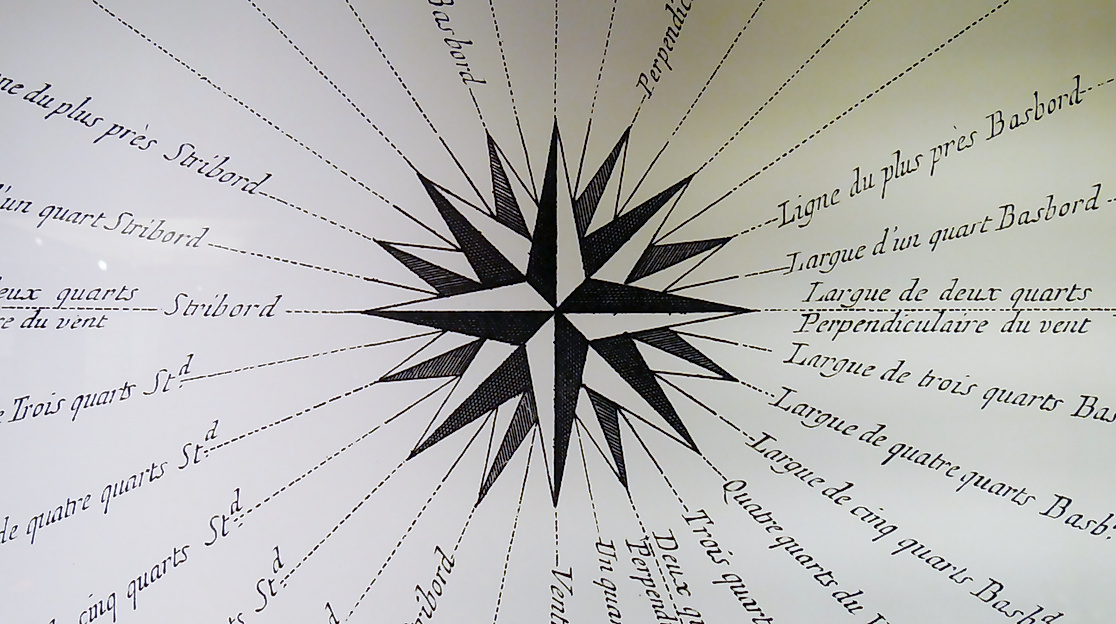 Basbord
ne du plus près Stribord
Ligne du plus près Basbord
'un quart Stribord
Largue d'un quart Basbord
eux quarts
Stribord
re du vent
Largue de deux quarts
Perpendiculaire du vent
e Trois quarts St^d
Largue de trois quarts Bas
de quatre quarts St^d
Largue de quatre quarts Basb^d
cinq quarts St^d
Largue de cinq quarts Basb^d
ts St^d
d
ribord
Vent
Un quar
Deux qu
Perpend
Trois quart
Quatre quarts du
Perpendic